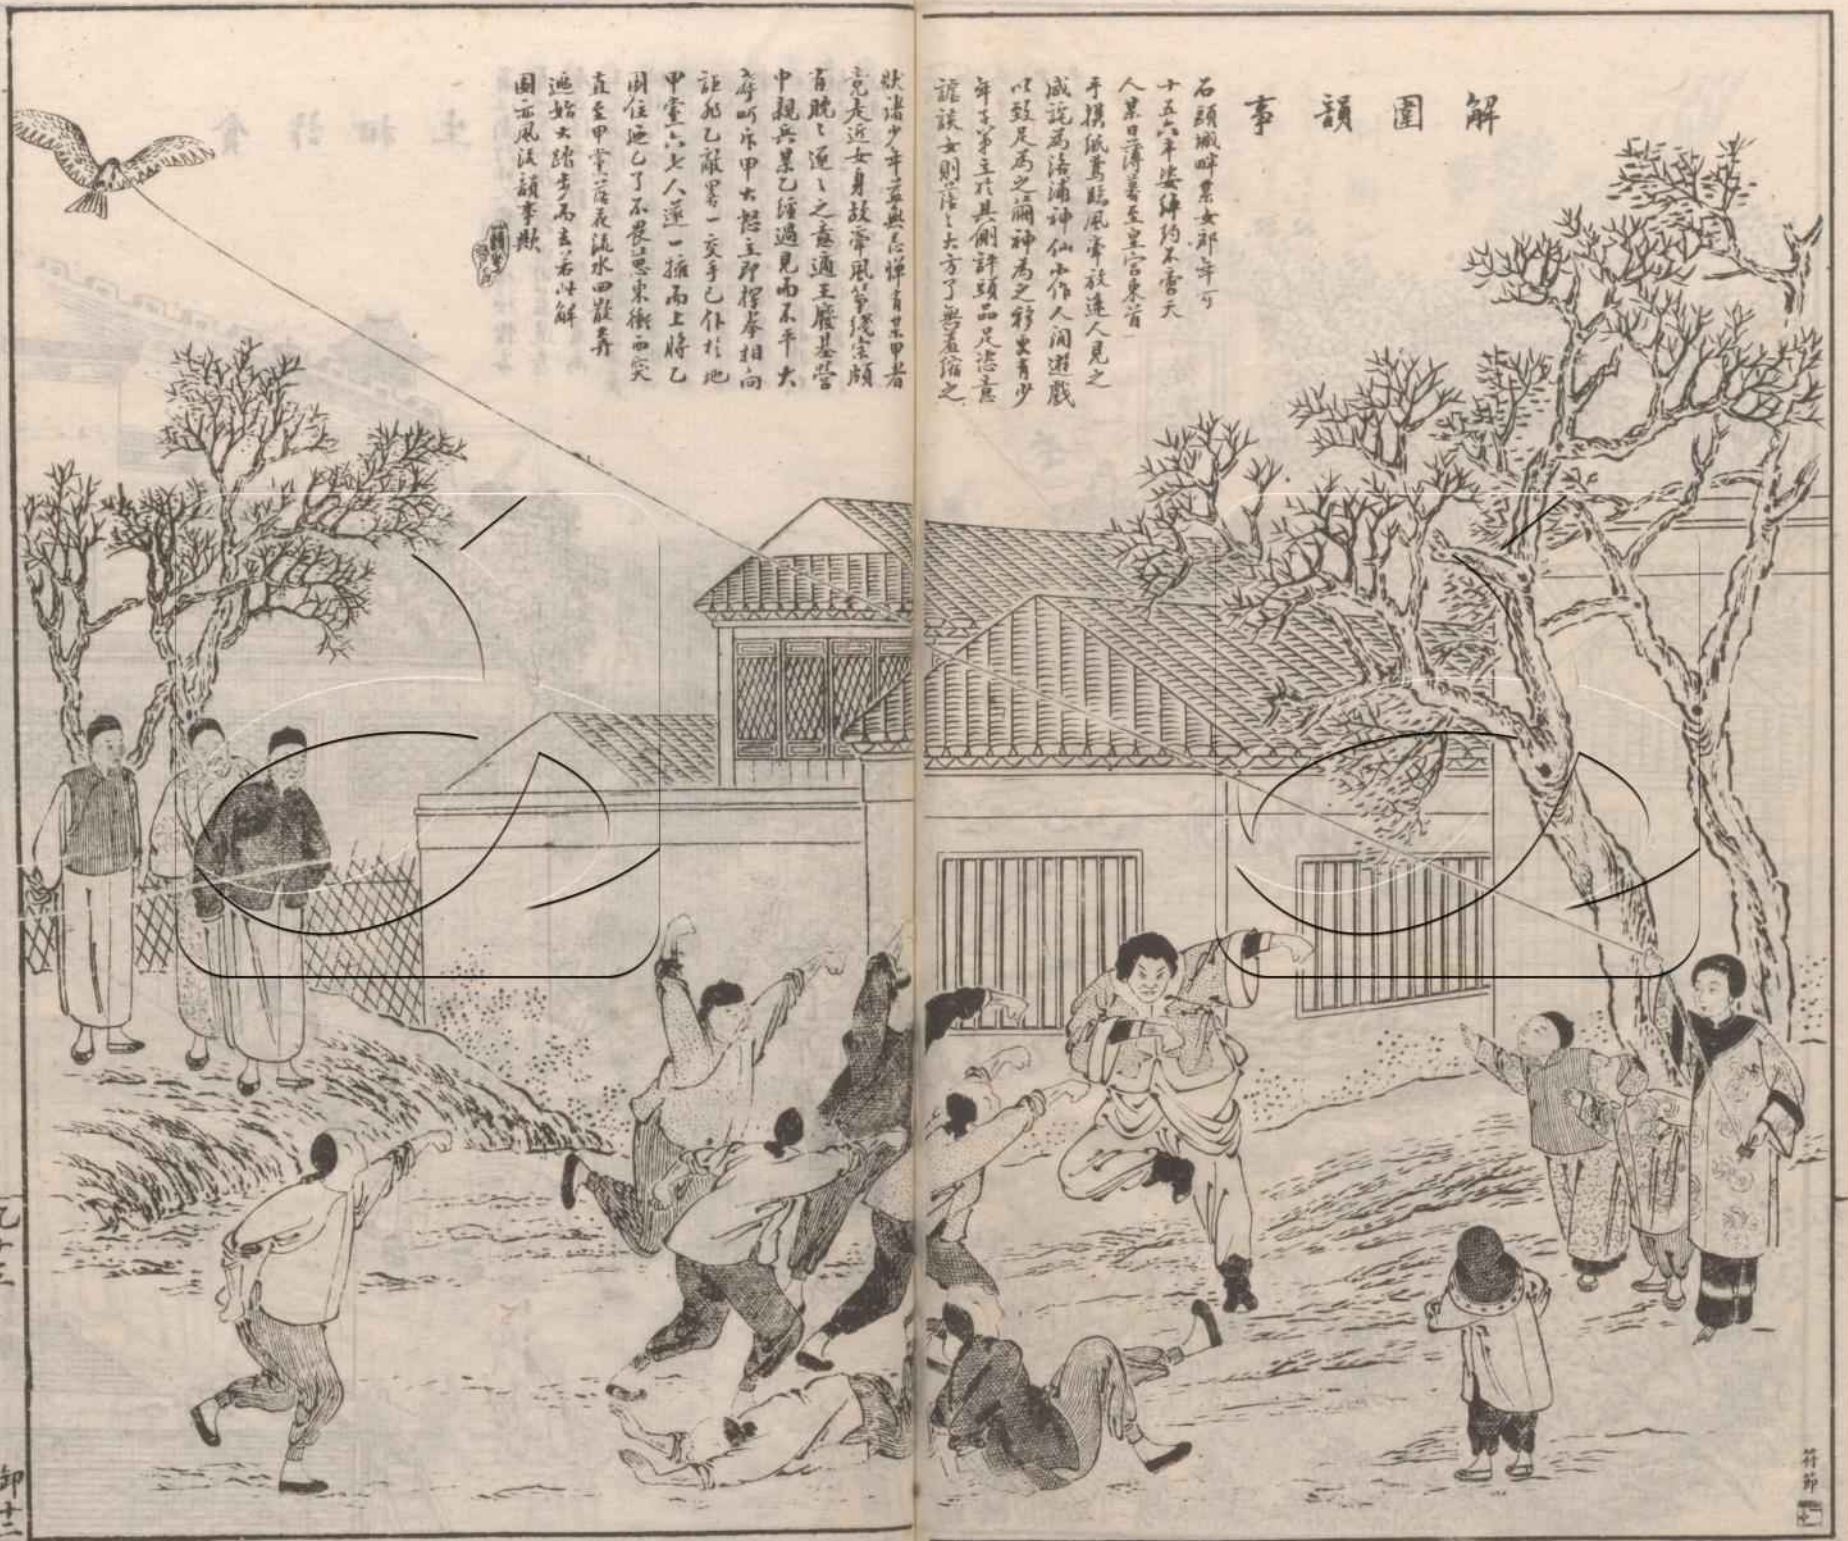 解圍韻事
石頭城畔某女郎年可
十五六丰姿綽約不啻天
人某日薄暮至皇宮東首
手摸紙鳶臨風牽放途人見之
咸詫為洛浦神仙小作人間遊戲
以致足為之痲神為之移更有少
年子弟立於其側評頭品足恣意
謔談女則落々大方了無羞縮之
狀諸少年益無忌憚有某甲者
竟走近女身故牽風箏綫宗頗
有眈々逐々之意適王廢基營
中親兵某乙經過見而不平大
聲叱斥甲大怒立即揮拳相向
詎飛乙敵畧一交手已仆於地
甲黨六七人遂一擁而上將乙
圍住迺乙了不畏葸東衝西突
直至甲黨落花流水四散奔
逃始大踏步而去若此解
圍亦風流韻事歟
符節